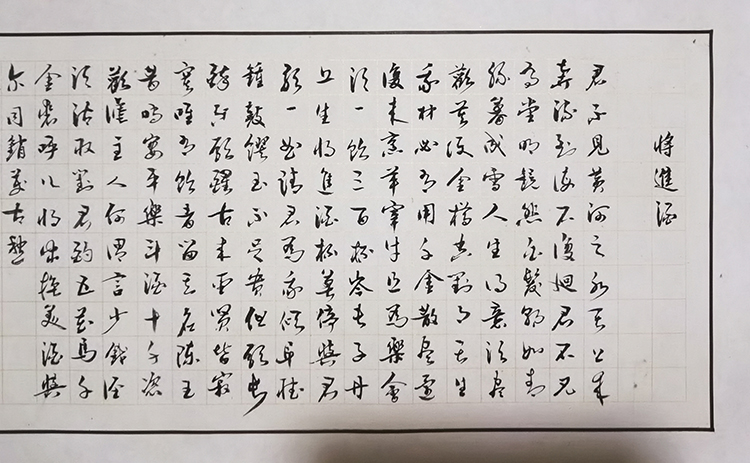 將進酒
君不見黃河之水天上來
奔流到海不復迴君不見
高堂明鏡悲白髮朝如青
絲暮成雪人生得意須盡
歡莫使金樽空對月天生
我材必有用千金散盡還
復來烹羊宰牛且為樂會
須一飲三百杯岑夫子丹
丘生將進酒杯莫停與君
歌一曲請君為我傾耳聽
鐘鼓饌玉不足貴但願長
醉不願醒古來聖賢皆寂
寞唯有飲者留其名陳王
昔時宴平樂斗酒十千恣
歡謔主人何謂言少錢徑
須沽取對君酌五花馬千
金裘呼兒將出換美酒與
爾同銷萬古愁